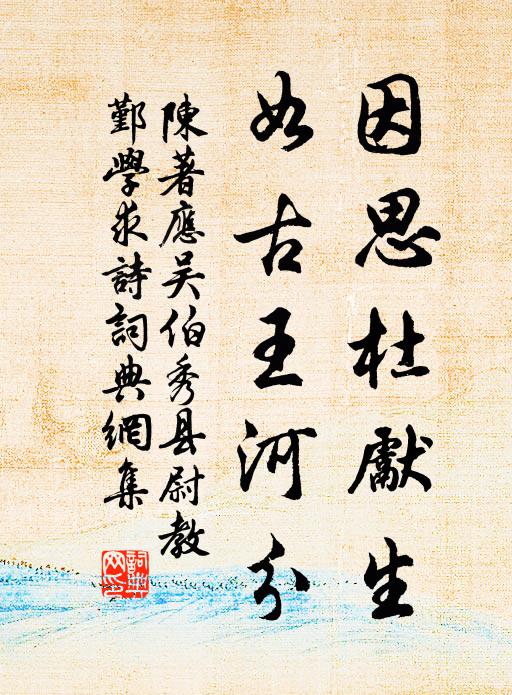 因思杜獻生
如古王河分
陳著應吴伯秀县尉教
鄞學求詩詞典網集